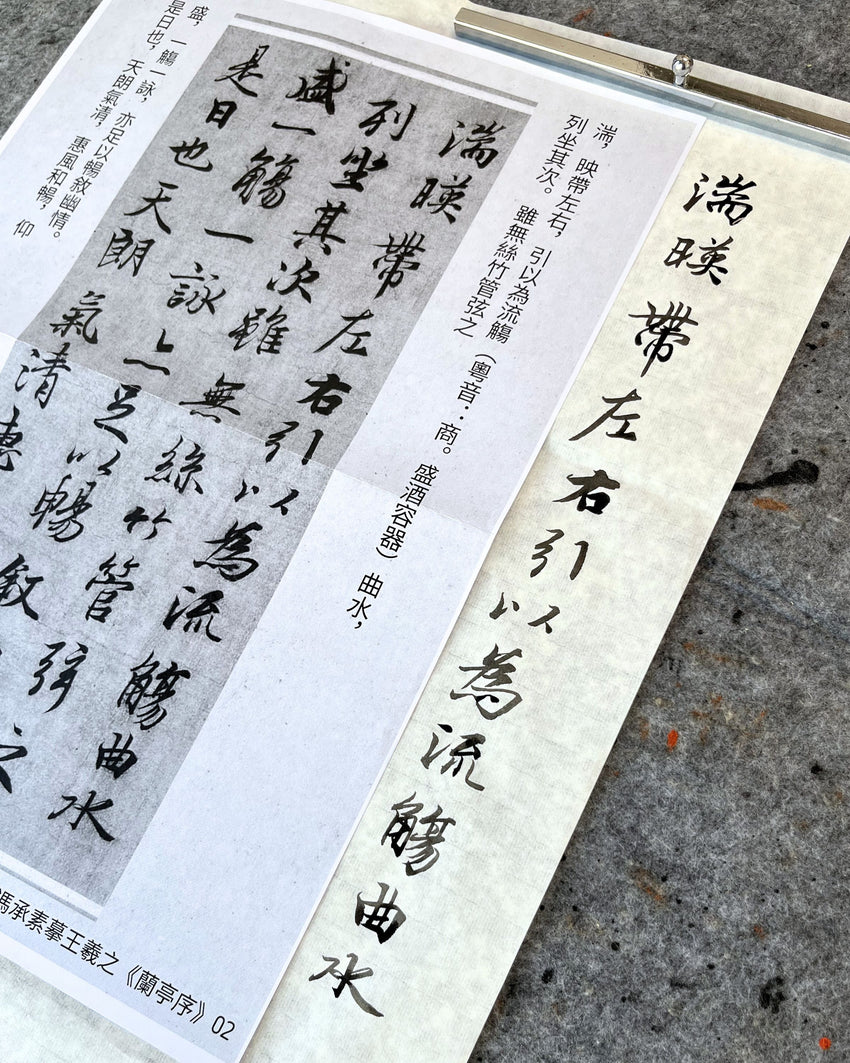 湍暎帶左右引以為流觴曲水
湍，映帶左右，引以為流觴（粵音：商。盛酒容器）曲水，
列坐其次。雖無絲竹管弦之
湍暎帶左右引以為流觴曲水
列坐其次雖無絲竹管弦之
盛一觴一詠亦足以暢敘
是日也天朗氣清惠
盛，一觴一詠，亦足以暢敘幽情。
是日也，天朗氣清，惠風和暢，仰
馮承素摹王羲之《蘭亭序》02